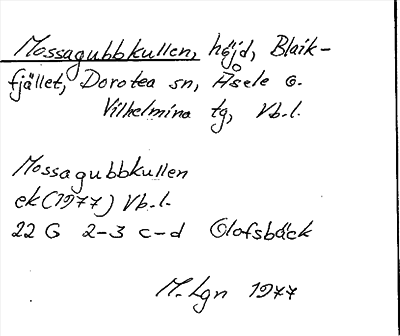 Mossagubbkullen, höjd, Blaik-
fjället, Dorotea sn, Åsele o.
Vilhelmina tg, Vb.l.
Mossagubbkullen
ek (1977) Vb.l.
22 G 2-3 c-d Olofsbäck
M. Lgn 1977